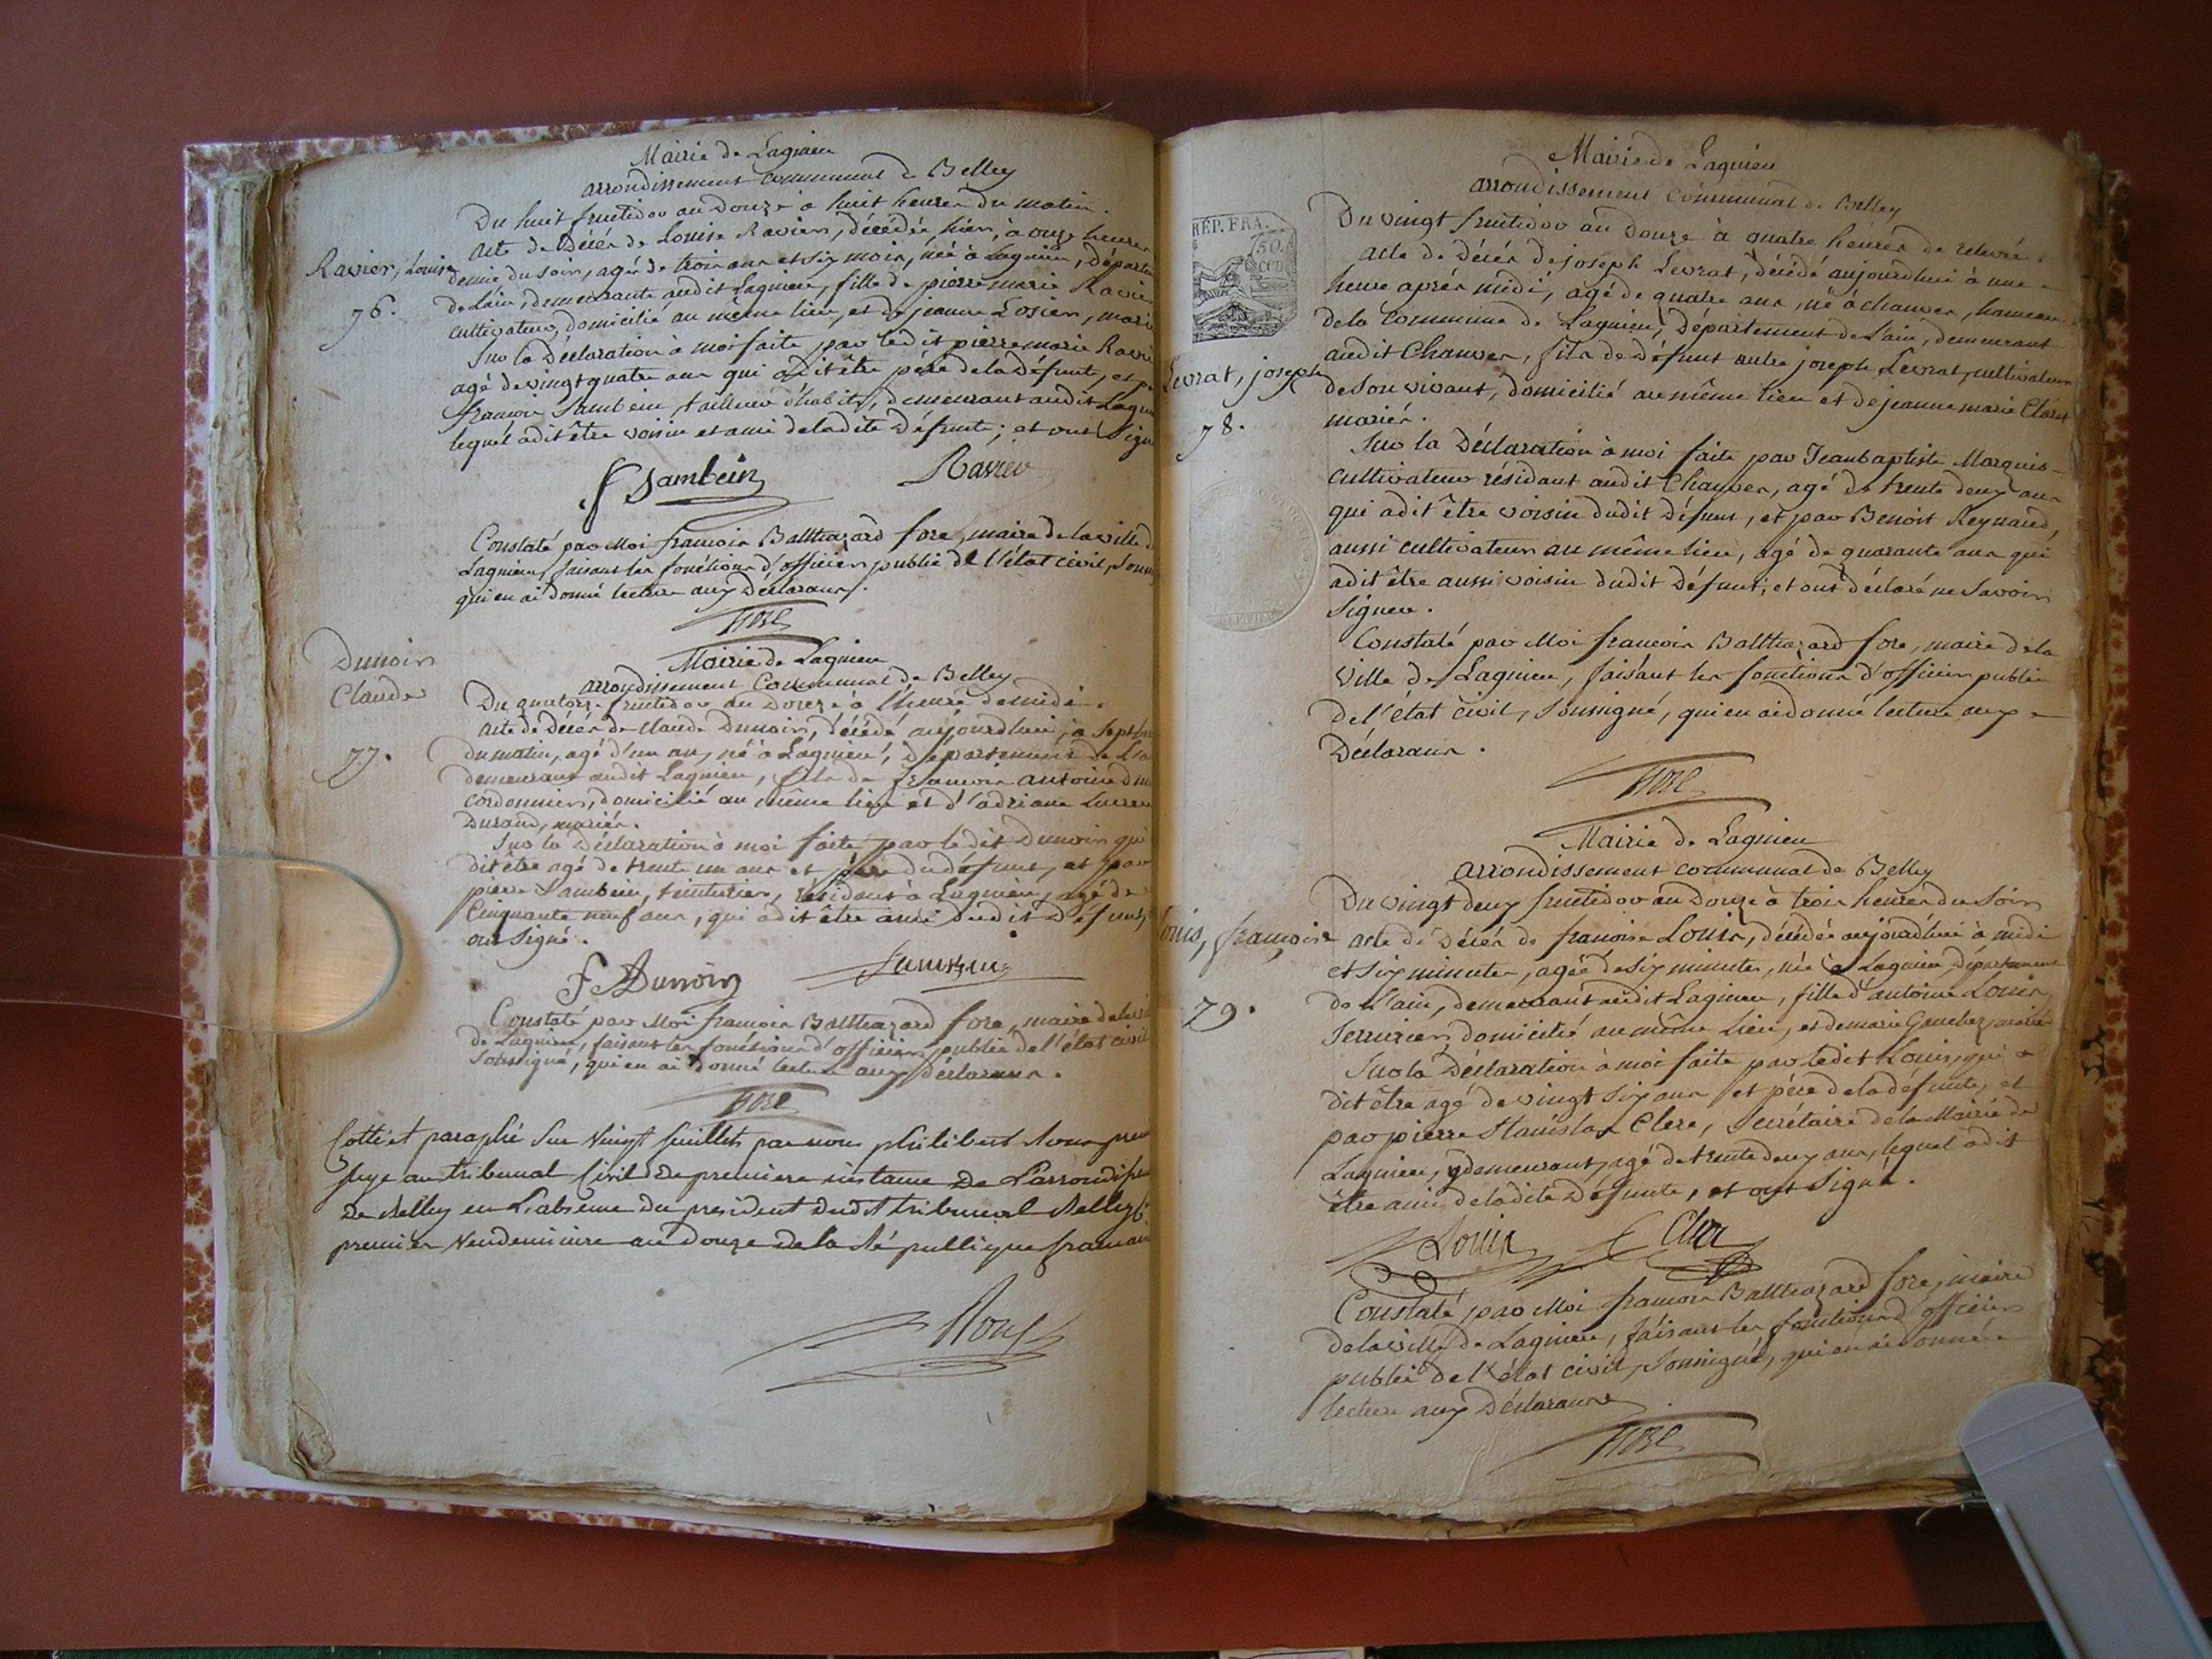 Mairie de Lagnieu
arrondissement communal de Belley
Du huit fructidor an Douze à huit heures du matin.
acte de Décès de Louise Ravier, décédée, hier, à onze heures
Ravier, Louise
76.
demie du soir, agée de trois ans et six mois, née à Lagnieu, départem
de L'ain, demeurante audit Lagnieu, fille de pierre marie Ravier
cultivateur, domicilié au même lieu, et de jeanne Losier, marié
Sur la Déclaration à moi faite par ledit pierre marie Ravie
agé de vingt quatre ans qui a dit être père de la défunte, et p
françois Jambein, tailleur d'habits, demeurant audit Lagn
lequel a dit être voisin et ami de ladite Défunte; et ont Sign
f Jambein Ravier
Constaté par Moi françois Balthazard fore, maire de la ville d
Lagnieu, faisant les fonctions d'officier public de l'état civil, Sous
qui en ai donné lecture aux Déclarans.
Fore
Mairie de Lagnieu
arrondissement Communal de Belley
Dunoir
Claude
77.
Du quatorze fructidor an Douze à l'heure de midi.
acte de Décès de Claude Dunoir, décédé aujourdhui, à Sept he
du matin, agé d'un an, né à Lagnieu, Département de L'a
demeurant audit Lagnieu, fils de françois antoine Du
cordonnier, domicilié au même lieu et d'adriane
Durand, mariés.
Sur la Déclaration à moi faite par ledit Dunoir qui
dit être agé de trente un ans et père du défunt, et par
pierre Jambein, teinturier, résidant à Lagnieu, agé de
Cinquante neuf ans, qui a dit être ami dudit Défunt,
ont Signé.
f Dunoir
Constaté par Moi françois Balthazard fore, maire de la vi
de Lagnieu, faisant les fonctions d'officier public de l'état civil
Soussigné, qui en ai donné lecture aux déclarans.
Fore
Cotté et paraphé Sur vingt feuillets par nous philibert
juge au tribunal Civil de premiere instance De L'arrondisse
De Belley en L'absence du president Dudit tribunal Belley
premier Vendemiaire an douze de la République françai
Mairie de Lagnieu
arrondissement Communal de Belley
RÉP. FRA.
50
CEN
Du vingt fructidor an Douze à quatre heures de relevée.
acte de Décès de joseph Levrat, décédé aujourdhui à une
heure après midi, agé de quatre ans, né à chanves, hameau
de la Commune de Lagnieu, Département de L'ain, demeurant
audit Chanves, fils de Défunt autre joseph Levrat, cultivateur
Levrat, joseph
78.
de son vivant, domicilié au même lieu et de jeanne marie Claret
mariés.
Sur la Déclaration à moi faite par Jean baptiste Marquis
cultivateur résidant audit Chanves, agé de trente deux ans
qui a dit être voisin dudit Défunt, et par Benoit Reynaud,
aussi cultivateur au même lieu, agé de quarante ans qui
a dit être aussi voisin dudit Défunt; et ont déclaré ne Savoir
Signer.
Constaté par Moi françois Balthazard fore, maire de la
Ville de Lagnieu, faisant les fonctions d'officier public
de l'état civil, Soussigné, qui en ai donné lecture aux
Déclarans.
Fore
Mairie de Lagnieu
arrondissement communal de Belley
Du vingt deux fructidor an Douze à trois heures du Soir
ouis, françoise
79.
acte de Décès de françoise Louis, décédée aujourdhui à midi
et six minutes, agée de six minutes, née à Lagnieu, Département
de L'ain, demeurant audit Lagnieu, fille d'antoine Louis
Serrurier, domicilié au même lieu, et de marie Gauchez, mariés
Sur la Déclaration à moi faite par ledit Louis, qui a
dit être agé de vingt six ans et père de la défunte, et
par pierre Stanislas Clere, Secrétaire de la Mairie de
Lagnieu, y demeurant, agé de trente deux ans, lequel a dit
être ami de ladite Défunte, et ont Signé.
Louis Clere
Constaté par Moi françois Balthazard fore, maire
de la ville de Lagnieu, faisant les fonctions d'officier
public de l'état civil, Soussigné, qui en ai donné
lecture aux Déclarans
Fore